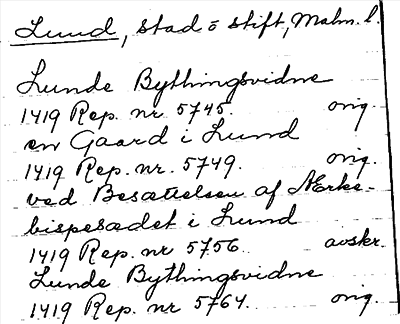 Lund, stad o stift, Malm. l.
Lunde Bythingsvidne
1419 Rep. nr 5745. orig.
en Gaard i Lund
1419 Rep. nr. 5749. orig.
ved Besættelsen af Ærke-
bispesædet i Lund
1419 Rep. nr 5756. avskr.
Lunde Bythingsvidne
1419 Rep. nr 5764. orig.